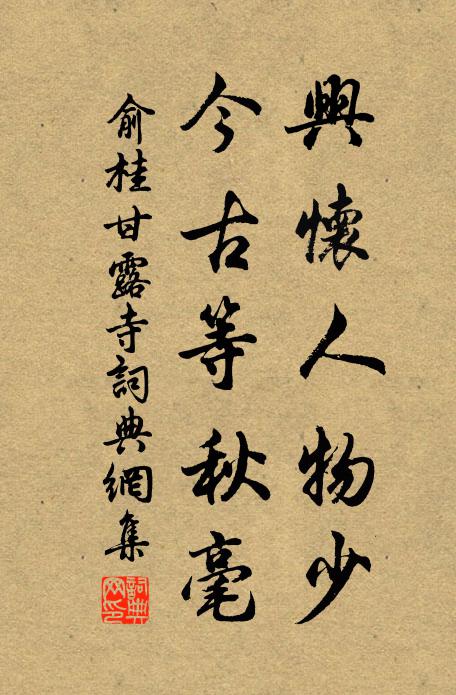 興懷人物少
今古等秋毫
俞桂甘露寺詞典網集
詞典網印